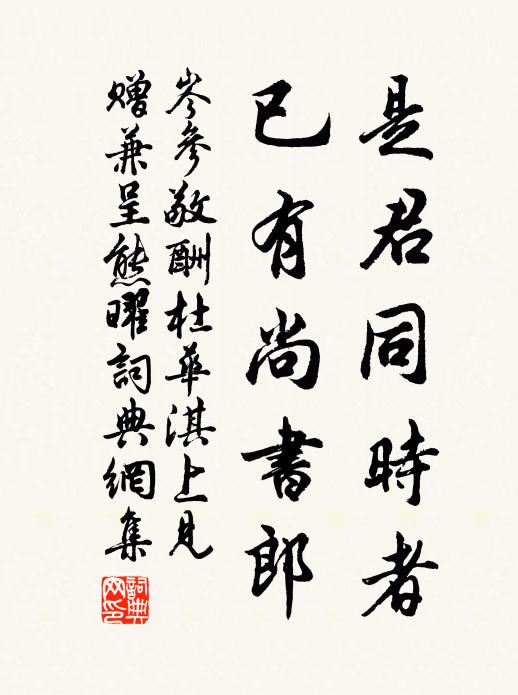 是君同時者
已有尚書郎
岑參敬酬杜華淇上見
贈兼呈熊曜詞典網集
詞典
网印